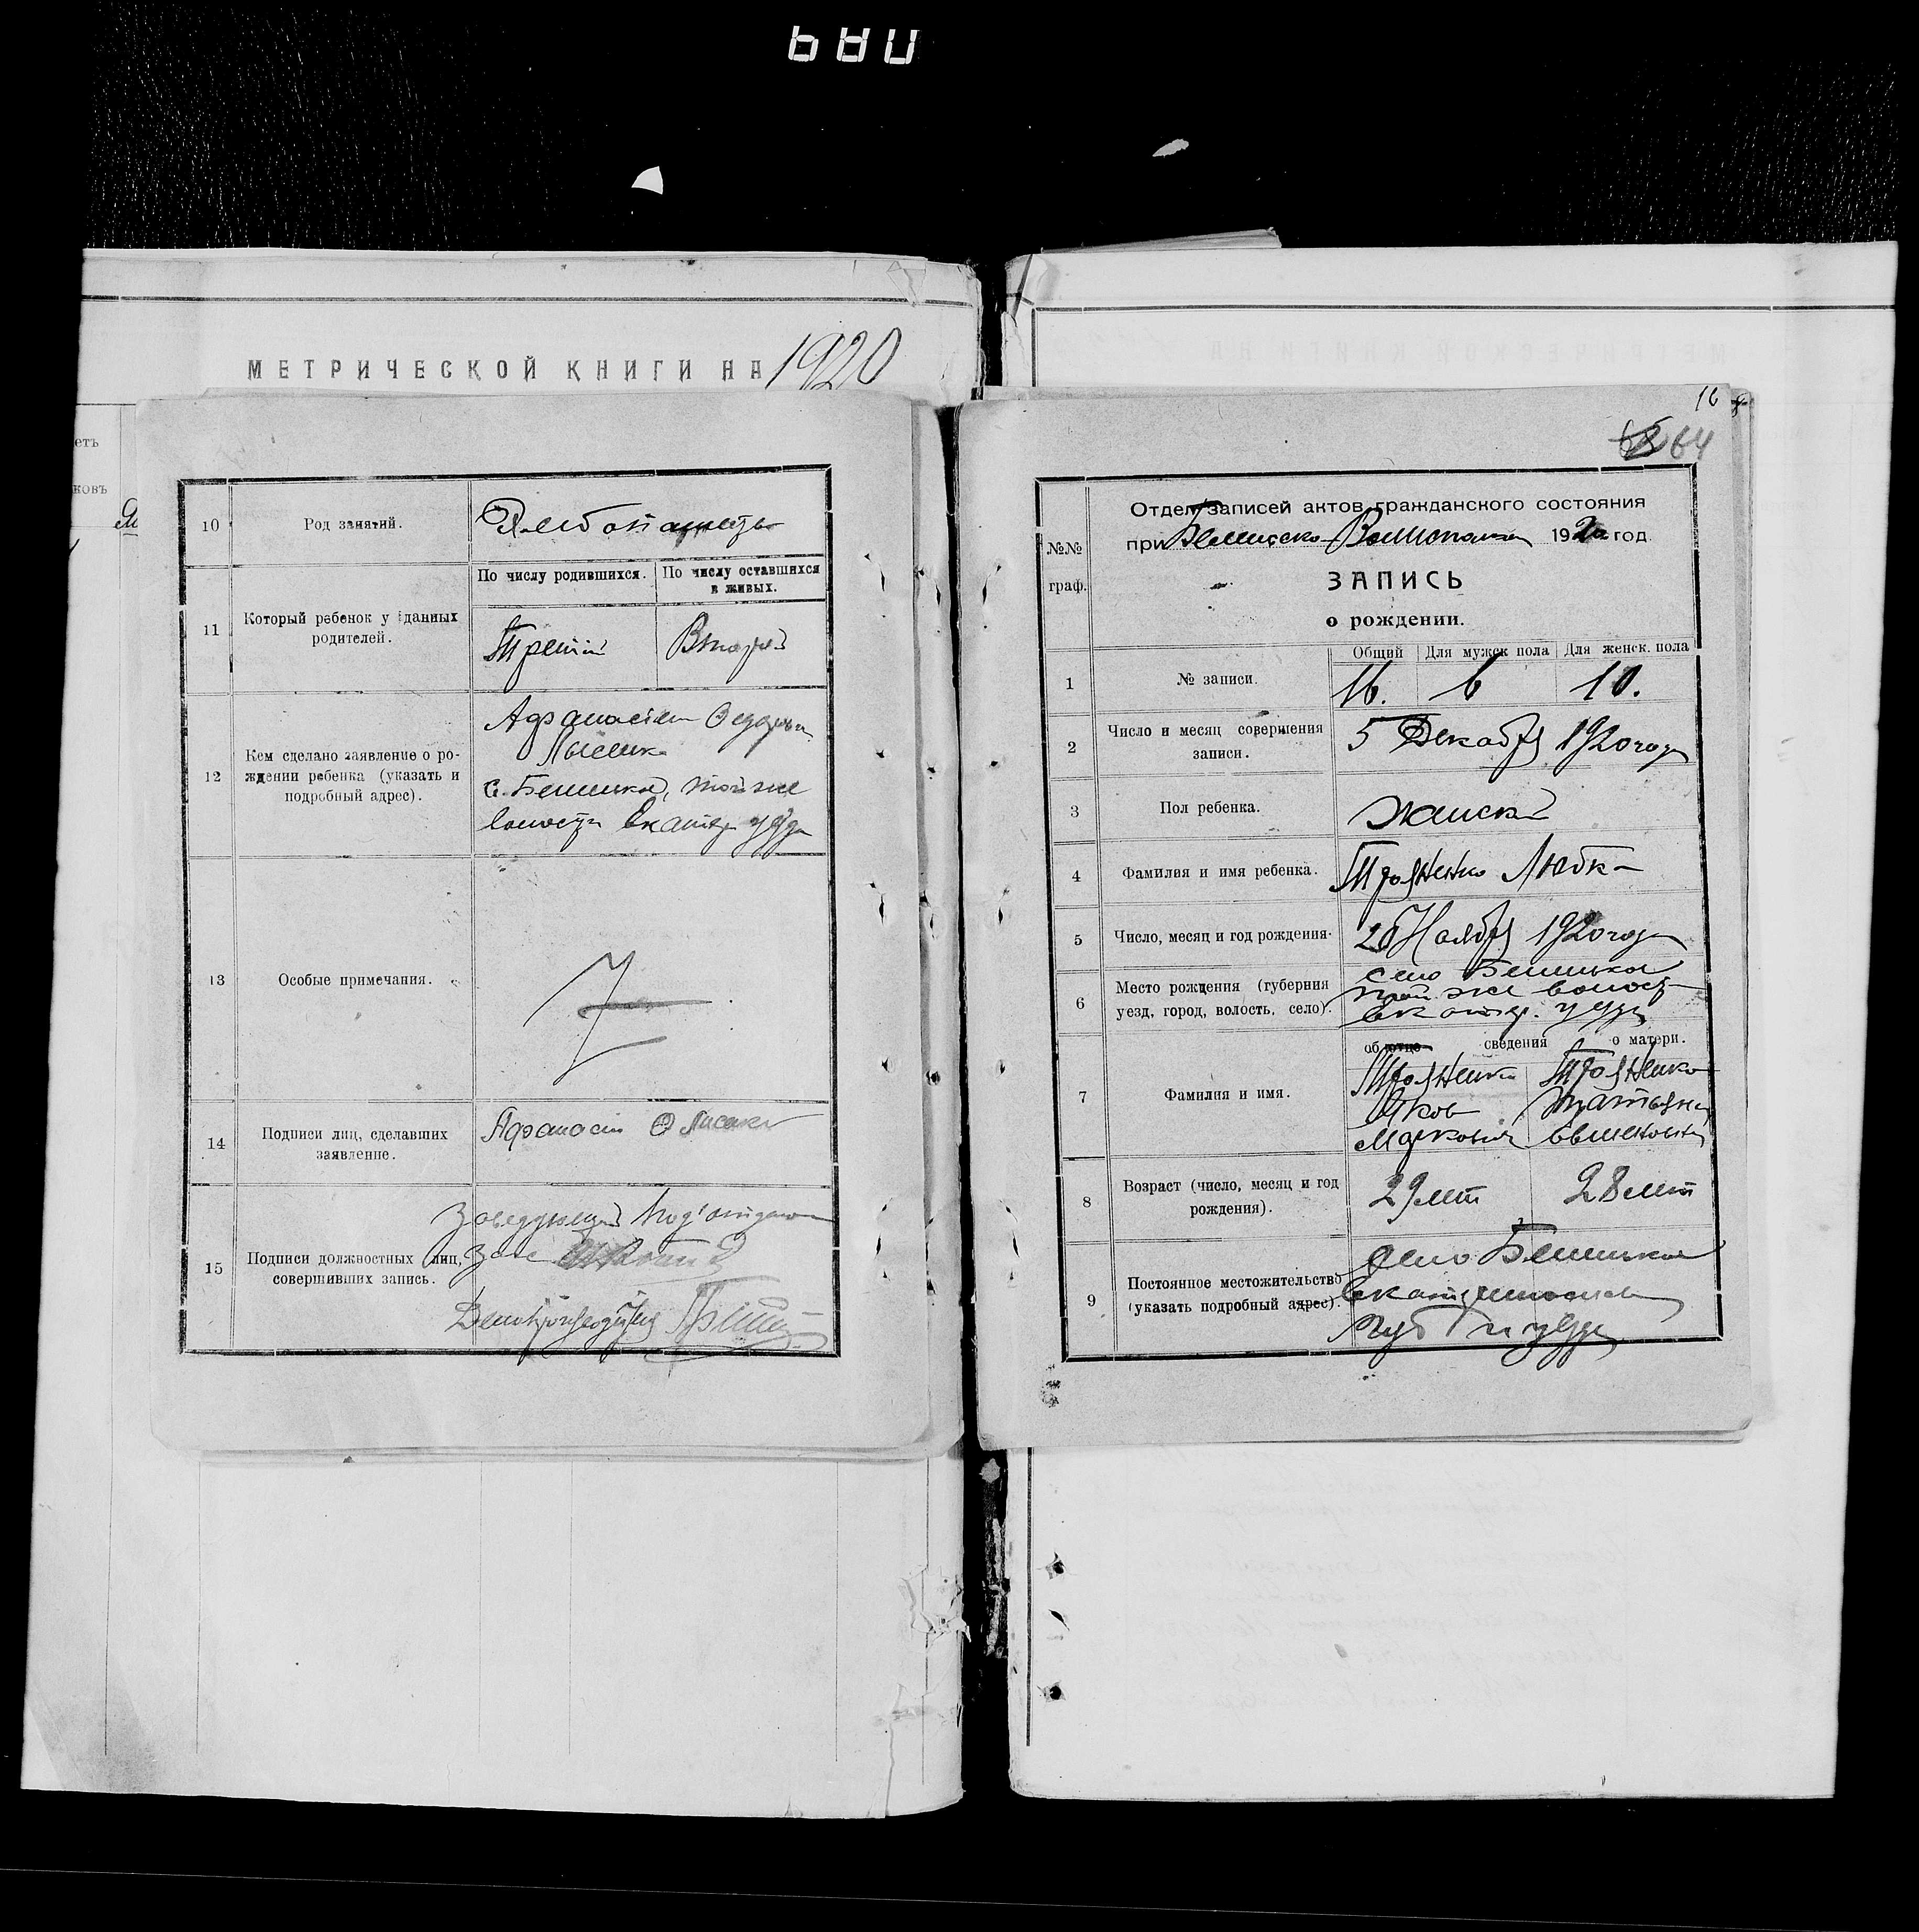 МЕТРИЧЕСКОЙ КНИГИ НА 1920
етъ
ковъ
10 Род занятий. Хлебопашець
11 Который ребенок у данных родителей.
По числу родившихся. По числу оставшихся в живых.
Третий Второй
12 Кем сделано заявление о рождении ребенка (указать и подробный адрес).
Афанасием
с. , той же
волости Екатер уезда
13 Особые примечания.
14 Подписи лиц, сделавших заявление.
Афанасий
15 Подписи должностных лиц, совершивших запись.
Заведующий Под'отделом
Загс
Делопроизводитель
16
64
№№ граф.
Отдел записей актов гражданского состояния
при 1920 год.
ЗАПИСЬ
о рождении.
Общий Для мужск пола Для женск. пола
1 № записи. 16. 6 10.
2 Число и месяц совершения записи. 5 Декабря 1920 года
3 Пол ребенка. Женский
4 Фамилия и имя ребенка. Трояненко Любка
5 Число, месяц и год рождения. 26 Ноября 1920 года
6 Место рождения (губерния уезд, город, волость, село).
село
той же волости
Екатер. уезда
об отце сведения о матери.
7 Фамилия и имя.
Трояненко Трояненко
Яков Татьяна
Маркович
8 Возраст (число, месяц и год рождения). 29 лет 28 лет
9 Постоянное местожительство (указать подробный адрес).
Село
Екатеринослав
Губ и уезда